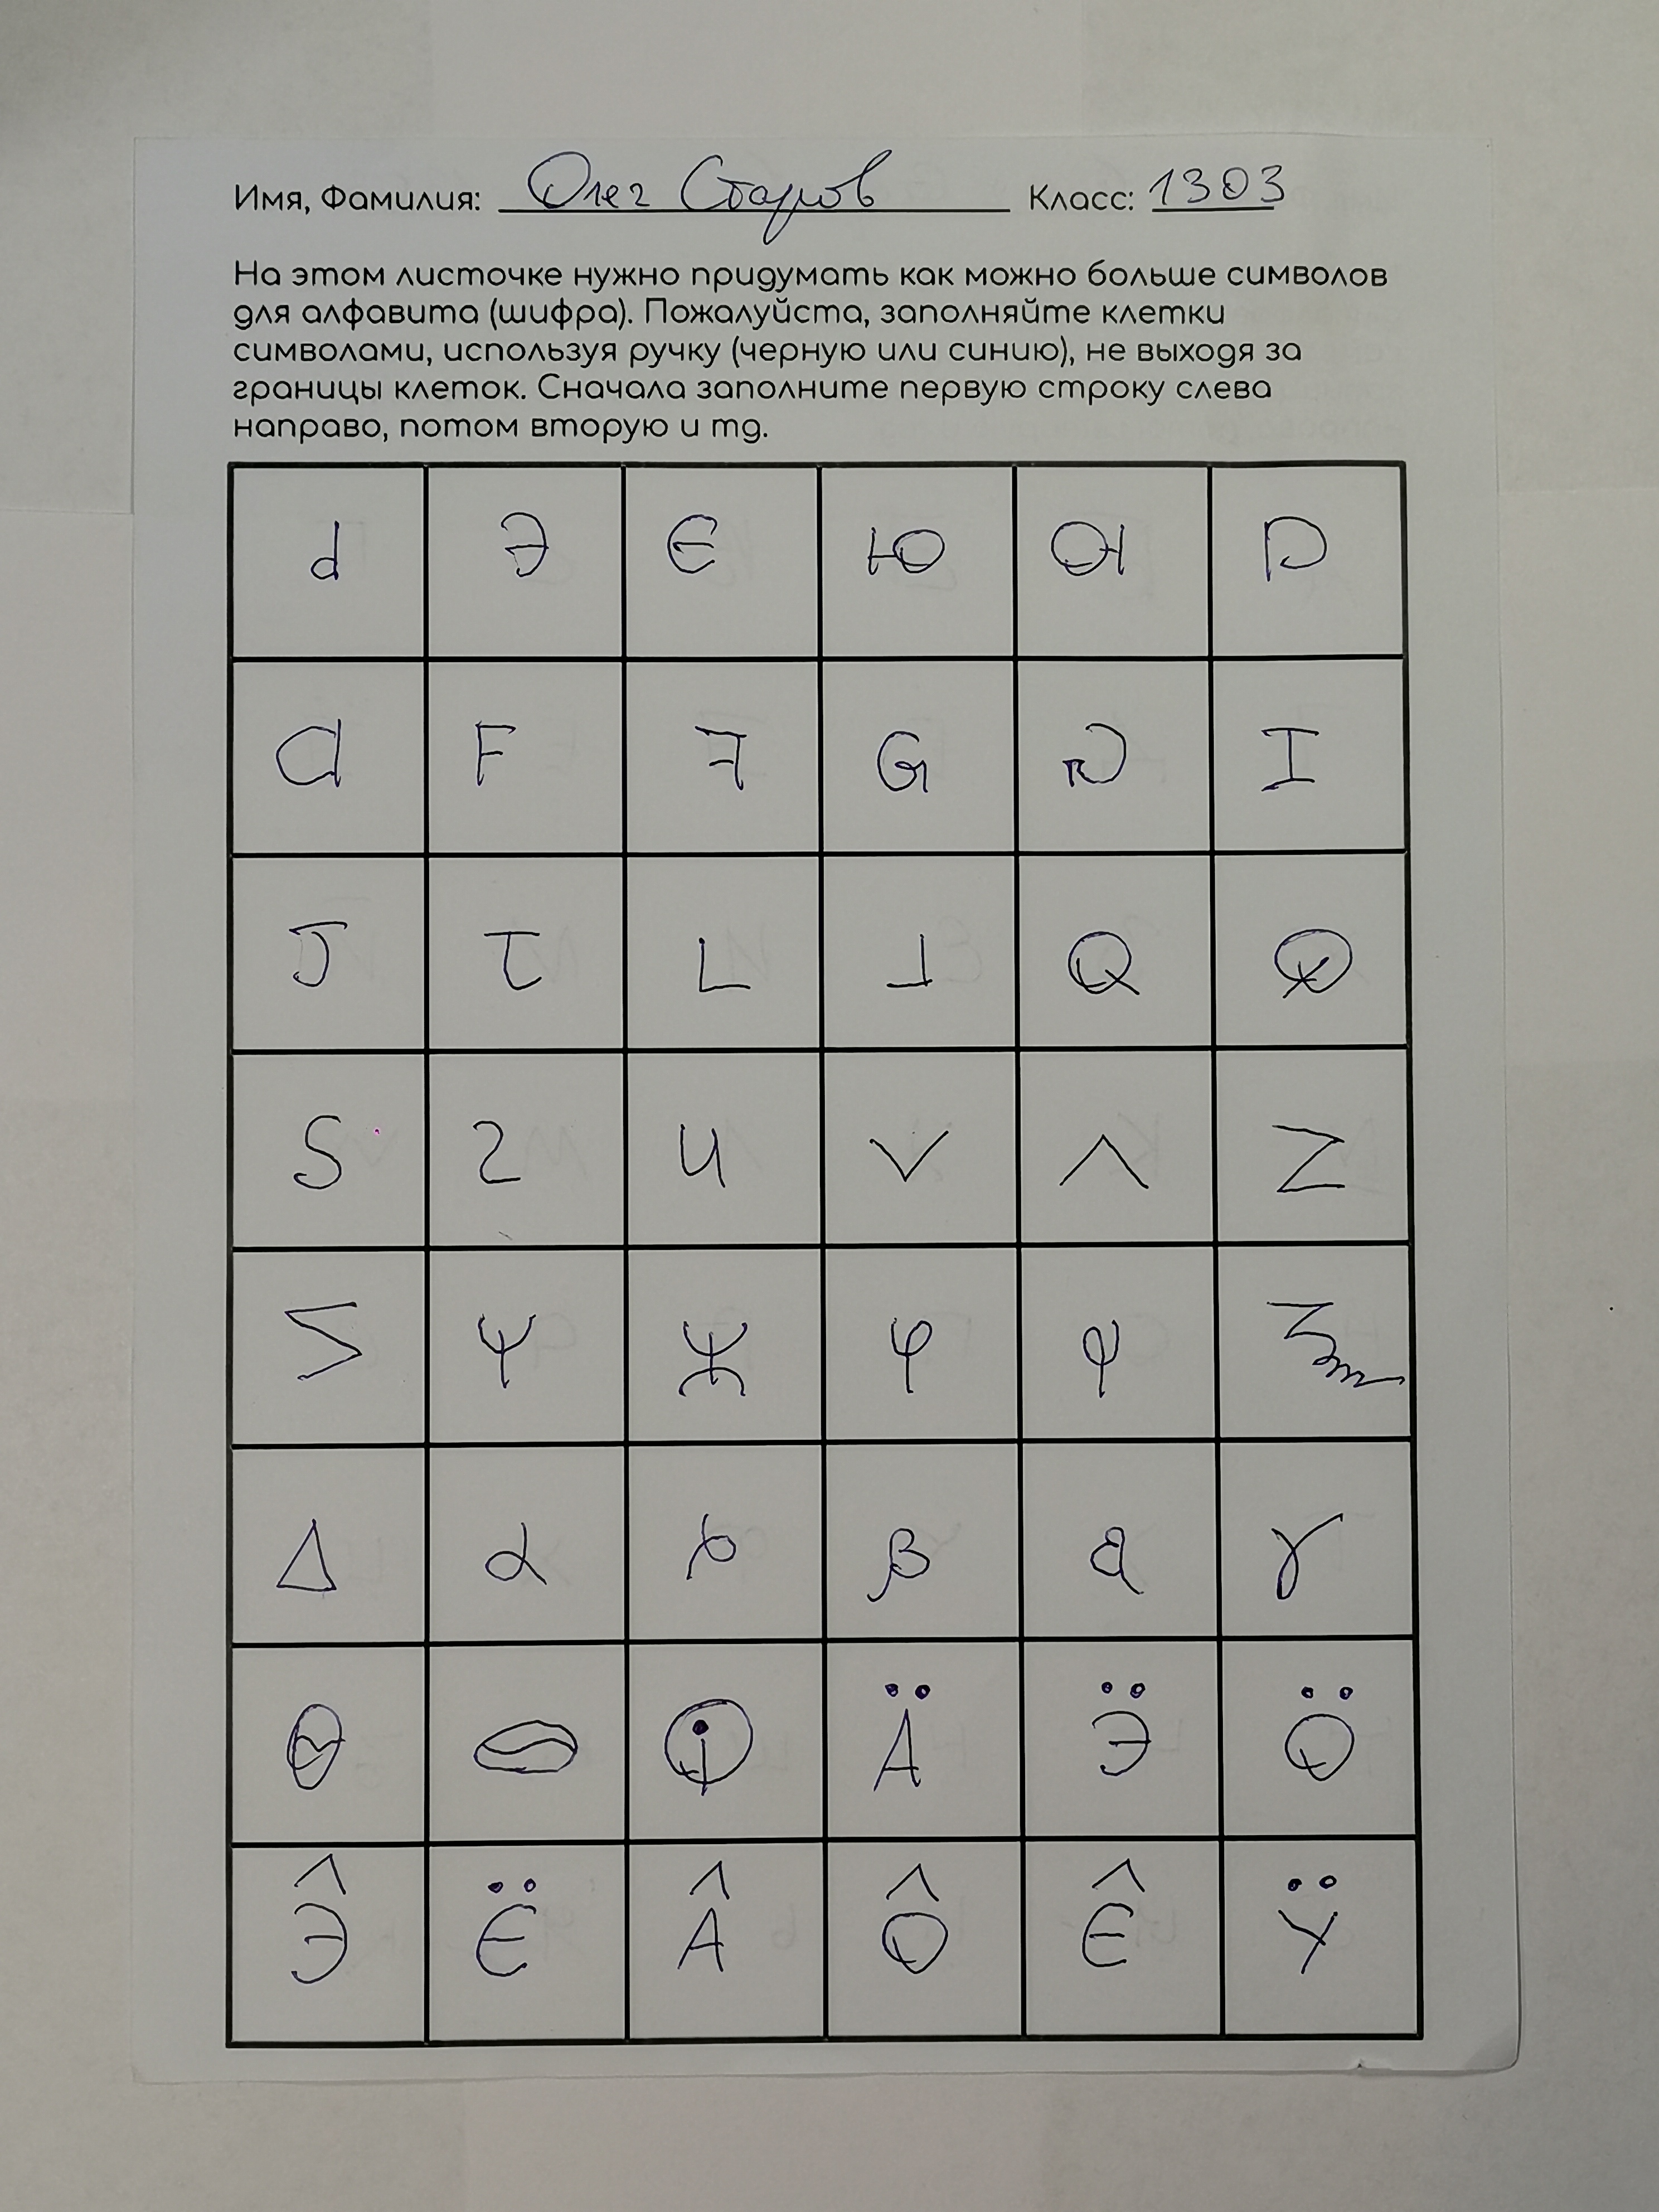 Имя, Фамилия: Олег Старов Класс: 1303
На этом листочке нужно придумать как можно больше символов
для алфавита (шифра). Пожалуйста, заполняйте клетки
символами, используя ручку (черную или синию), не выходя за
границы клеток. Сначала заполните первую строку слева
направо, потом вторую и тд.
d Э Є Ю D
F G I
J L Q
S 2 И V Λ Z
Ψ φ
Δ α β γ
θ Ä Ӭ Ö
Э̂ Є̈ Â Ô Є̂ Ÿ